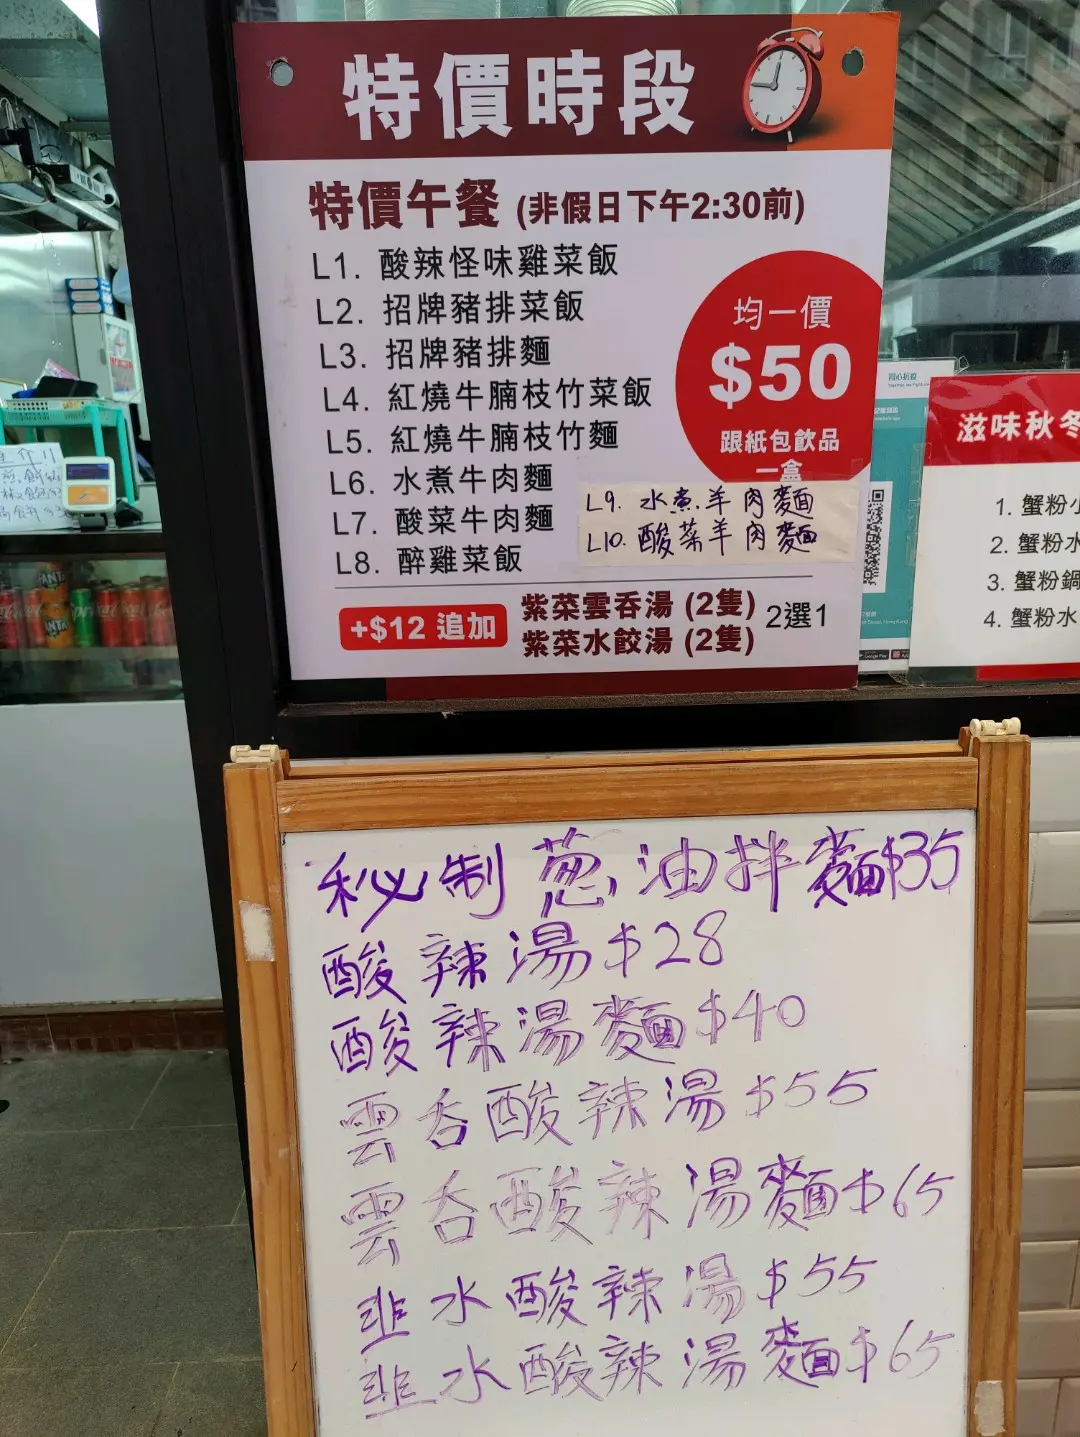 特價時段
特價午餐 (非假日下午2:30前)
L1. 酸辣怪味雞菜飯
L2. 招牌豬排菜飯
L3. 招牌豬排麵
L4. 紅燒牛腩枝竹菜飯
L5. 紅燒牛腩枝竹麵
L6. 水煮牛肉麵
L7. 酸菜牛肉麵
L8. 醉雞菜飯
均一價
$50
跟紙包飲品
一盒
L9. 水煮羊肉麵
L10. 酸菜羊肉麵
+$12 追加
紫菜雲吞湯 (2隻)
紫菜水餃湯 (2隻)
2選1
滋味秋冬
1. 蟹粉小
2. 蟹粉水
3. 蟹粉鍋
4. 蟹粉水
秘制葱油拌麵$35
酸辣湯$28
酸辣湯麵$40
雲吞酸辣湯$55
雲吞酸辣湯麵$65
韭水酸辣湯$55
韭水酸辣湯麵$65